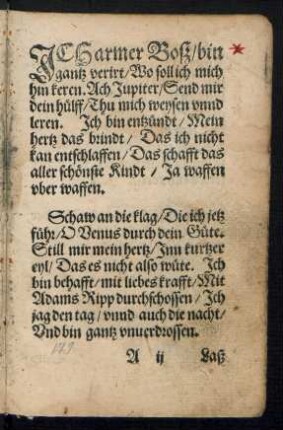 ICH armer Boß/bin
gantz verirt/Wo soll ich mich
hin keren. Ach Jupiter/Send mir
dein hülff/Thu mich weysen vnnd
leren. Ich bin entzündt/Mein
hertz das brindt/Das ich nicht
kan entschlaffen/Das schafft das
aller schönste Kindt/Ja waffen
vber waffen.
Schaw an die klag/Die ich jetz
führ/O Venus durch dein Güte.
Still mir mein hertz/Inn kurtzer
eyl/Das es nicht also wüte. Ich
bin behafft/mit liebes krafft/Mit
Adams Ripp durchschossen/Ich
jag den tag/vnnd auch die nacht/
Vnd bin gantz vnuerdrossen.
A ij Laß